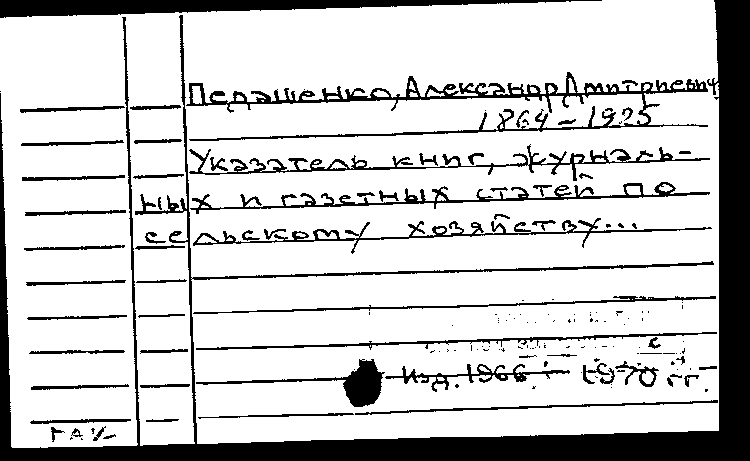 Педашенко, Александр Дмитриевич
1864-1925
Указатель книг, журналь-
ных и газетных статей по
сельскому хозяйству...
Изд. 1966 - 1970 гг.